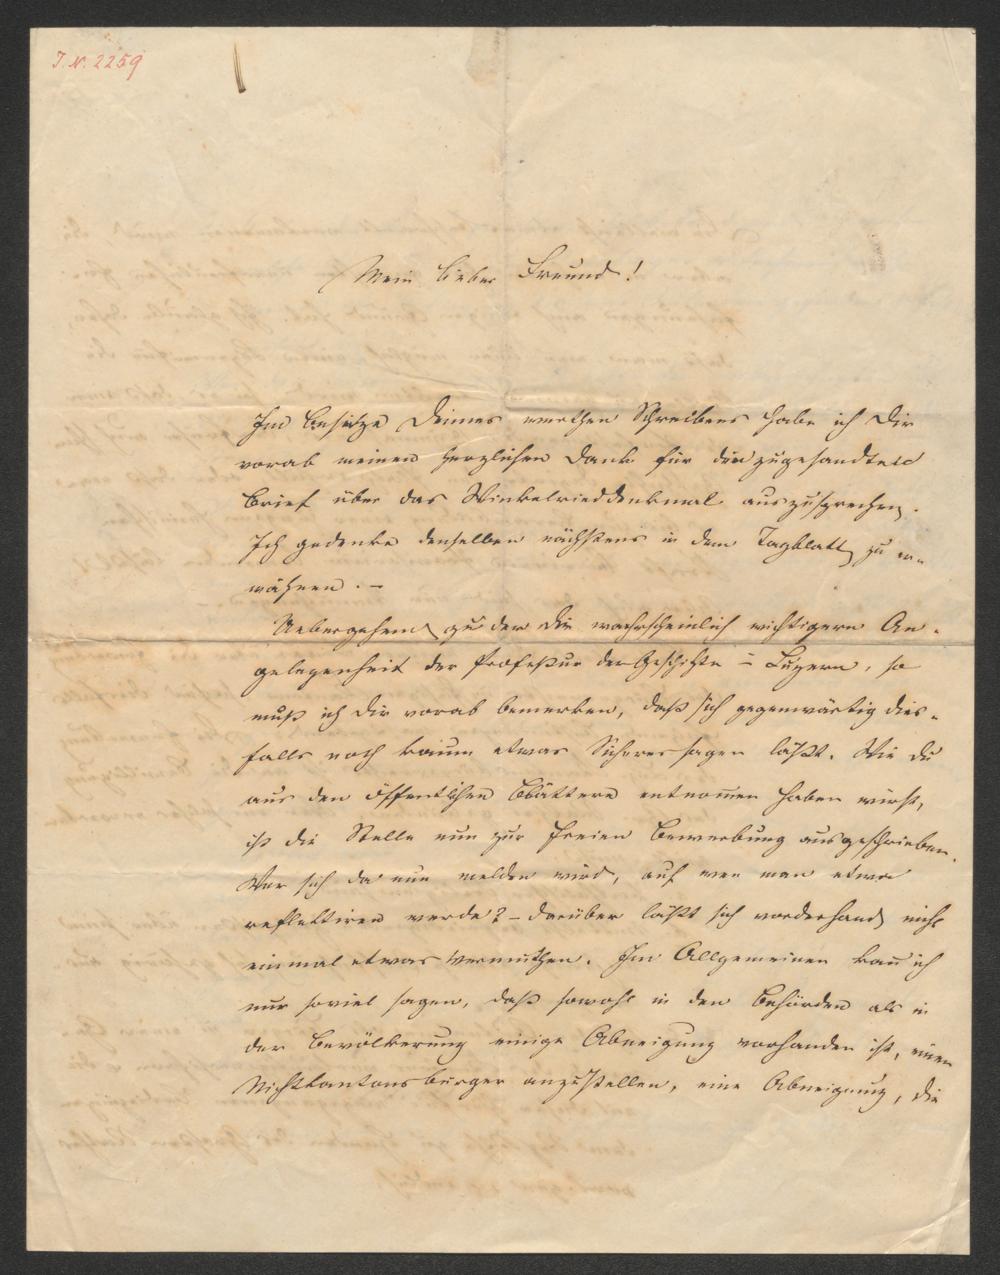 J. N. 2259
Mein lieber Freund!
Im Besitze Deines werthen Schreibens habe ich Dir
vorab meinen herzlichen Dank für den zugesandten
Brief über das Winkelrieddenkmal auszusprechen.
Ich gedenke denselben nächstens in dem Tagblatt zu er-
wähnen. –
Uebergehend zu der Dir wahrscheinlich wichtigern An-
gelegenheit der Profeßur der Geschichte in Luzern, so
muß ich Dir vorab bemerken, daß sich gegenwärtig dies-
falls noch kaum etwas Sicheres sagen läßt. Wie Du
aus den öffentlichen Blättern entnom̄en haben wirst,
ist die Stelle nun zur freien Bewerbung ausgeschrieben.
Wer sich da nun melden wird, auf wen man etwa
reflektiren werde? – darüber läßt sich vorderhand nicht
einmal etwas vermuthen. Im Allgemeinen kan̄ ich
nur soviel sagen, daß sowohl in den Behörden als in
der Bevölkerung einige Abneigung vorhanden ist, einen
Nichtkantonsbürger anzustellen, eine Abneigung, die